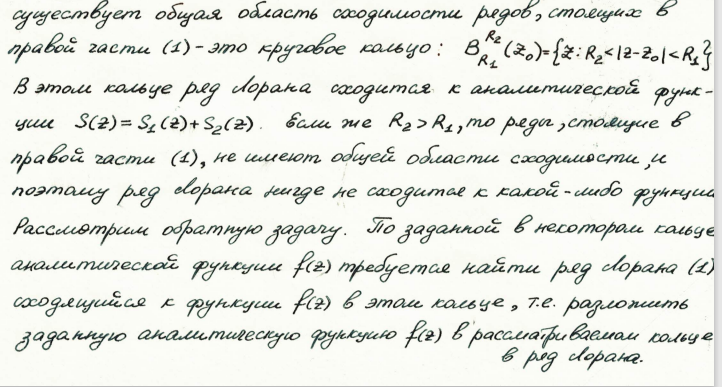 существует общая область сходимости рядов, стоящих в
правой части (1) - это круговое кольцо: B_{R_1}^{R_2}(z_0)={z: R_2<|z-z_0|<R_1}
В этом кольце ряд Лорана сходится к аналитической функ-
ции S(z)=S_1(z)+S_2(z). Если же R_2>R_1, то ряды, стоящие в
правой части (1), не имеют общей области сходимости, и
поэтому ряд Лорана нигде не сходится к какой-либо функции
Рассмотрим обратную задачу. По заданной в некотором кольце
аналитической функции f(z) требуется найти ряд Лорана (1)
сходящийся к функции f(z) в этом кольце, т.е. разложить
заданную аналитическую функцию f(z) в рассматриваемом кольце
в ряд Лорана.